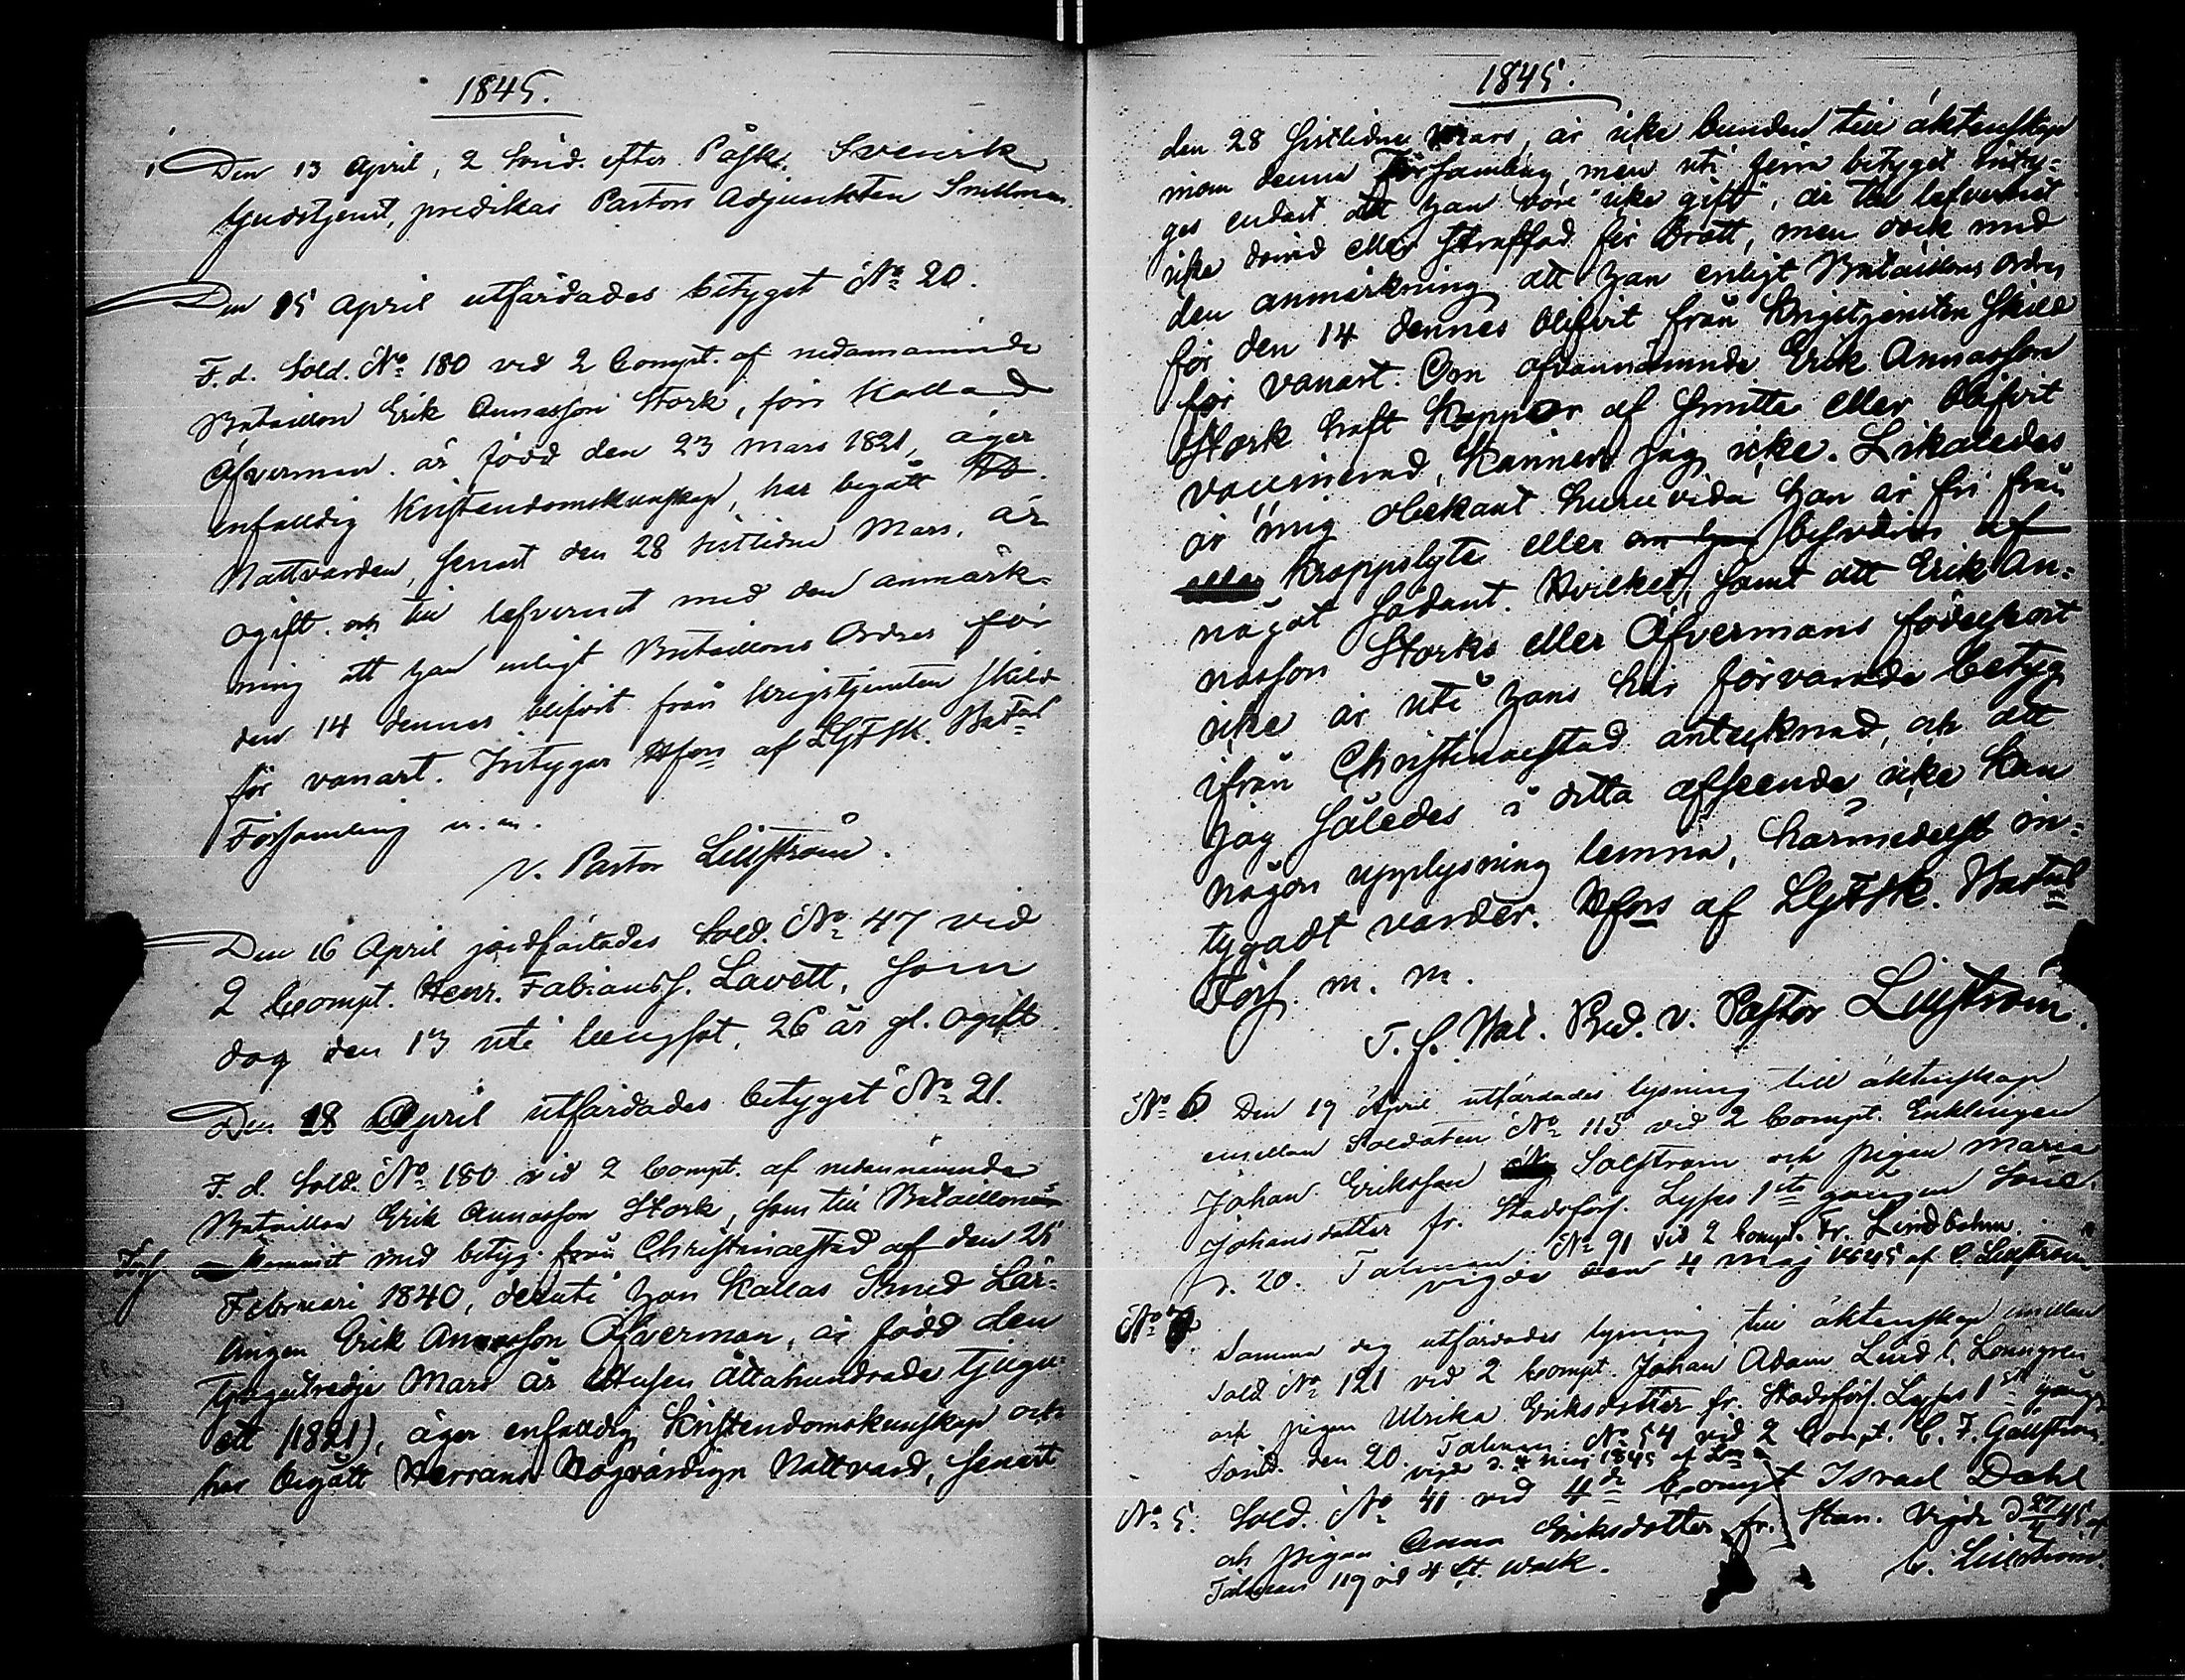 1845.
Den 13 April, 2 Sönd. efter Påsk. Svensk
Gudstjenst, predikar Pastors Adjunkten Smedman.
Den 15 April utfärdades betyget N:o 20.
F.d. Sold. N:o 180 vid 2 Compt. af nedannämnde
Bataillon Erik Annasson Stork, förr kallad
Öfverman. är född den 23 Mars 1821, äger
enfaldig Kristendomskunskap, har begått
Nattvarden, senast den 28 sistlidne Mars, är
ogift och till lefvernet med den anmärk-
ning att han enligt Bataillons Ordres för
den 14 dennes blifvit från krigstjensten skild
för vanart. Intygar Hfors af LGFSk. Batal
Församling m.m.
V. Pastor Lillström.
Den 16 April jordfästades Sold. N:o 47 vid
2 Compt. Henr. Fabianss. Lavett, som
dog den 13 uti lungsot, 26 år gl. ogift
Den 18 April utfärdades betyget N:o 21.
F.d. Sold. N:o 180 vid 2 Compt. af nedannämnda
Bataillon Erik Annasson Stork, som till Bataillonen
kommit med betyg från Christinaestad af den 25
Februari 1840, deruti han kallas Smed Lär-
lingen Erik Annasson Öfverman, är född den
tjugutredje Mars år ettusen åttahundrade tjugu-
ett (1821), äger enfaldig Kristendomskunskap och
har begått Herrans Högvärdiga Nattvard, senast
1845.
den 28 sistlidne Mars, är icke bunden till äktenskap
inom denna Församling, men uti förra betyget inty-
ges endast att han vore "icke gift", är till lefvernet
icke dömd eller straffad för brott, men dock med
den anmärkning att han enligt Bataillons Ordres
för den 14 dennes blifvit från Krigstjensten skild
för vanart. Om ofvannämnde Erik Annasson
Stork haft Koppor af smitta eller blifvit
vaccinerad, känner jag icke. Likaledes
är mig obekant huruvida han är fri från
eller kroppslyte eller om han besväras af
något sådant. Hvilket, samt att Erik An-
nasson Storks eller Öfvermans födelseort
icke är uti hans här förvarade betyg
ifrån Christinaestad antecknad, och att
jag således i detta afseende icke kan
någon upplysning lemna, härmedelst in-
tygadt varder. Hfors af LGFSk. Batal
Förs. m. m.
T. f. Bat. Pred. V. Pastor Lillström.
N:o 6. Den 19 April utfärdades lysning till äktenskap
emellan Soldaten N:o 115 vid 2 Compt. Enklingen
Johan Eriksson Solström och pigan Maria
Johansdotter fr. Stadsförs. Lyses 1sta gången Sönd.
d. 20. Talman: N:o 91 vid 2 Compt. Fr. Lindbohm.
vigde den 4 Maj 1845 af C. Lillström
N:o 7. Samma dag utfärdades lysning till äktenskap emellan
Sold N:o 121 vid 2 Compt. Johan Adam Lind l. Lönngren
och pigan Ulrika Eriksdotter fr. Stadsförs. Lyses 1sta gången
Sönd. den 20. Talman: N:o 54 vid 2 Compt. C. F. Gällström.
vigde d. 4 Maj 1845 af
N:o 5. Sold. N:o 41 vid 4de Compt Israel Dahl
och pigan Anna Eriksdotter fr. Stan. Vigde d 27/4 45 af
Talman 119 vid 4 Ct. Wolk. C. Lillström.